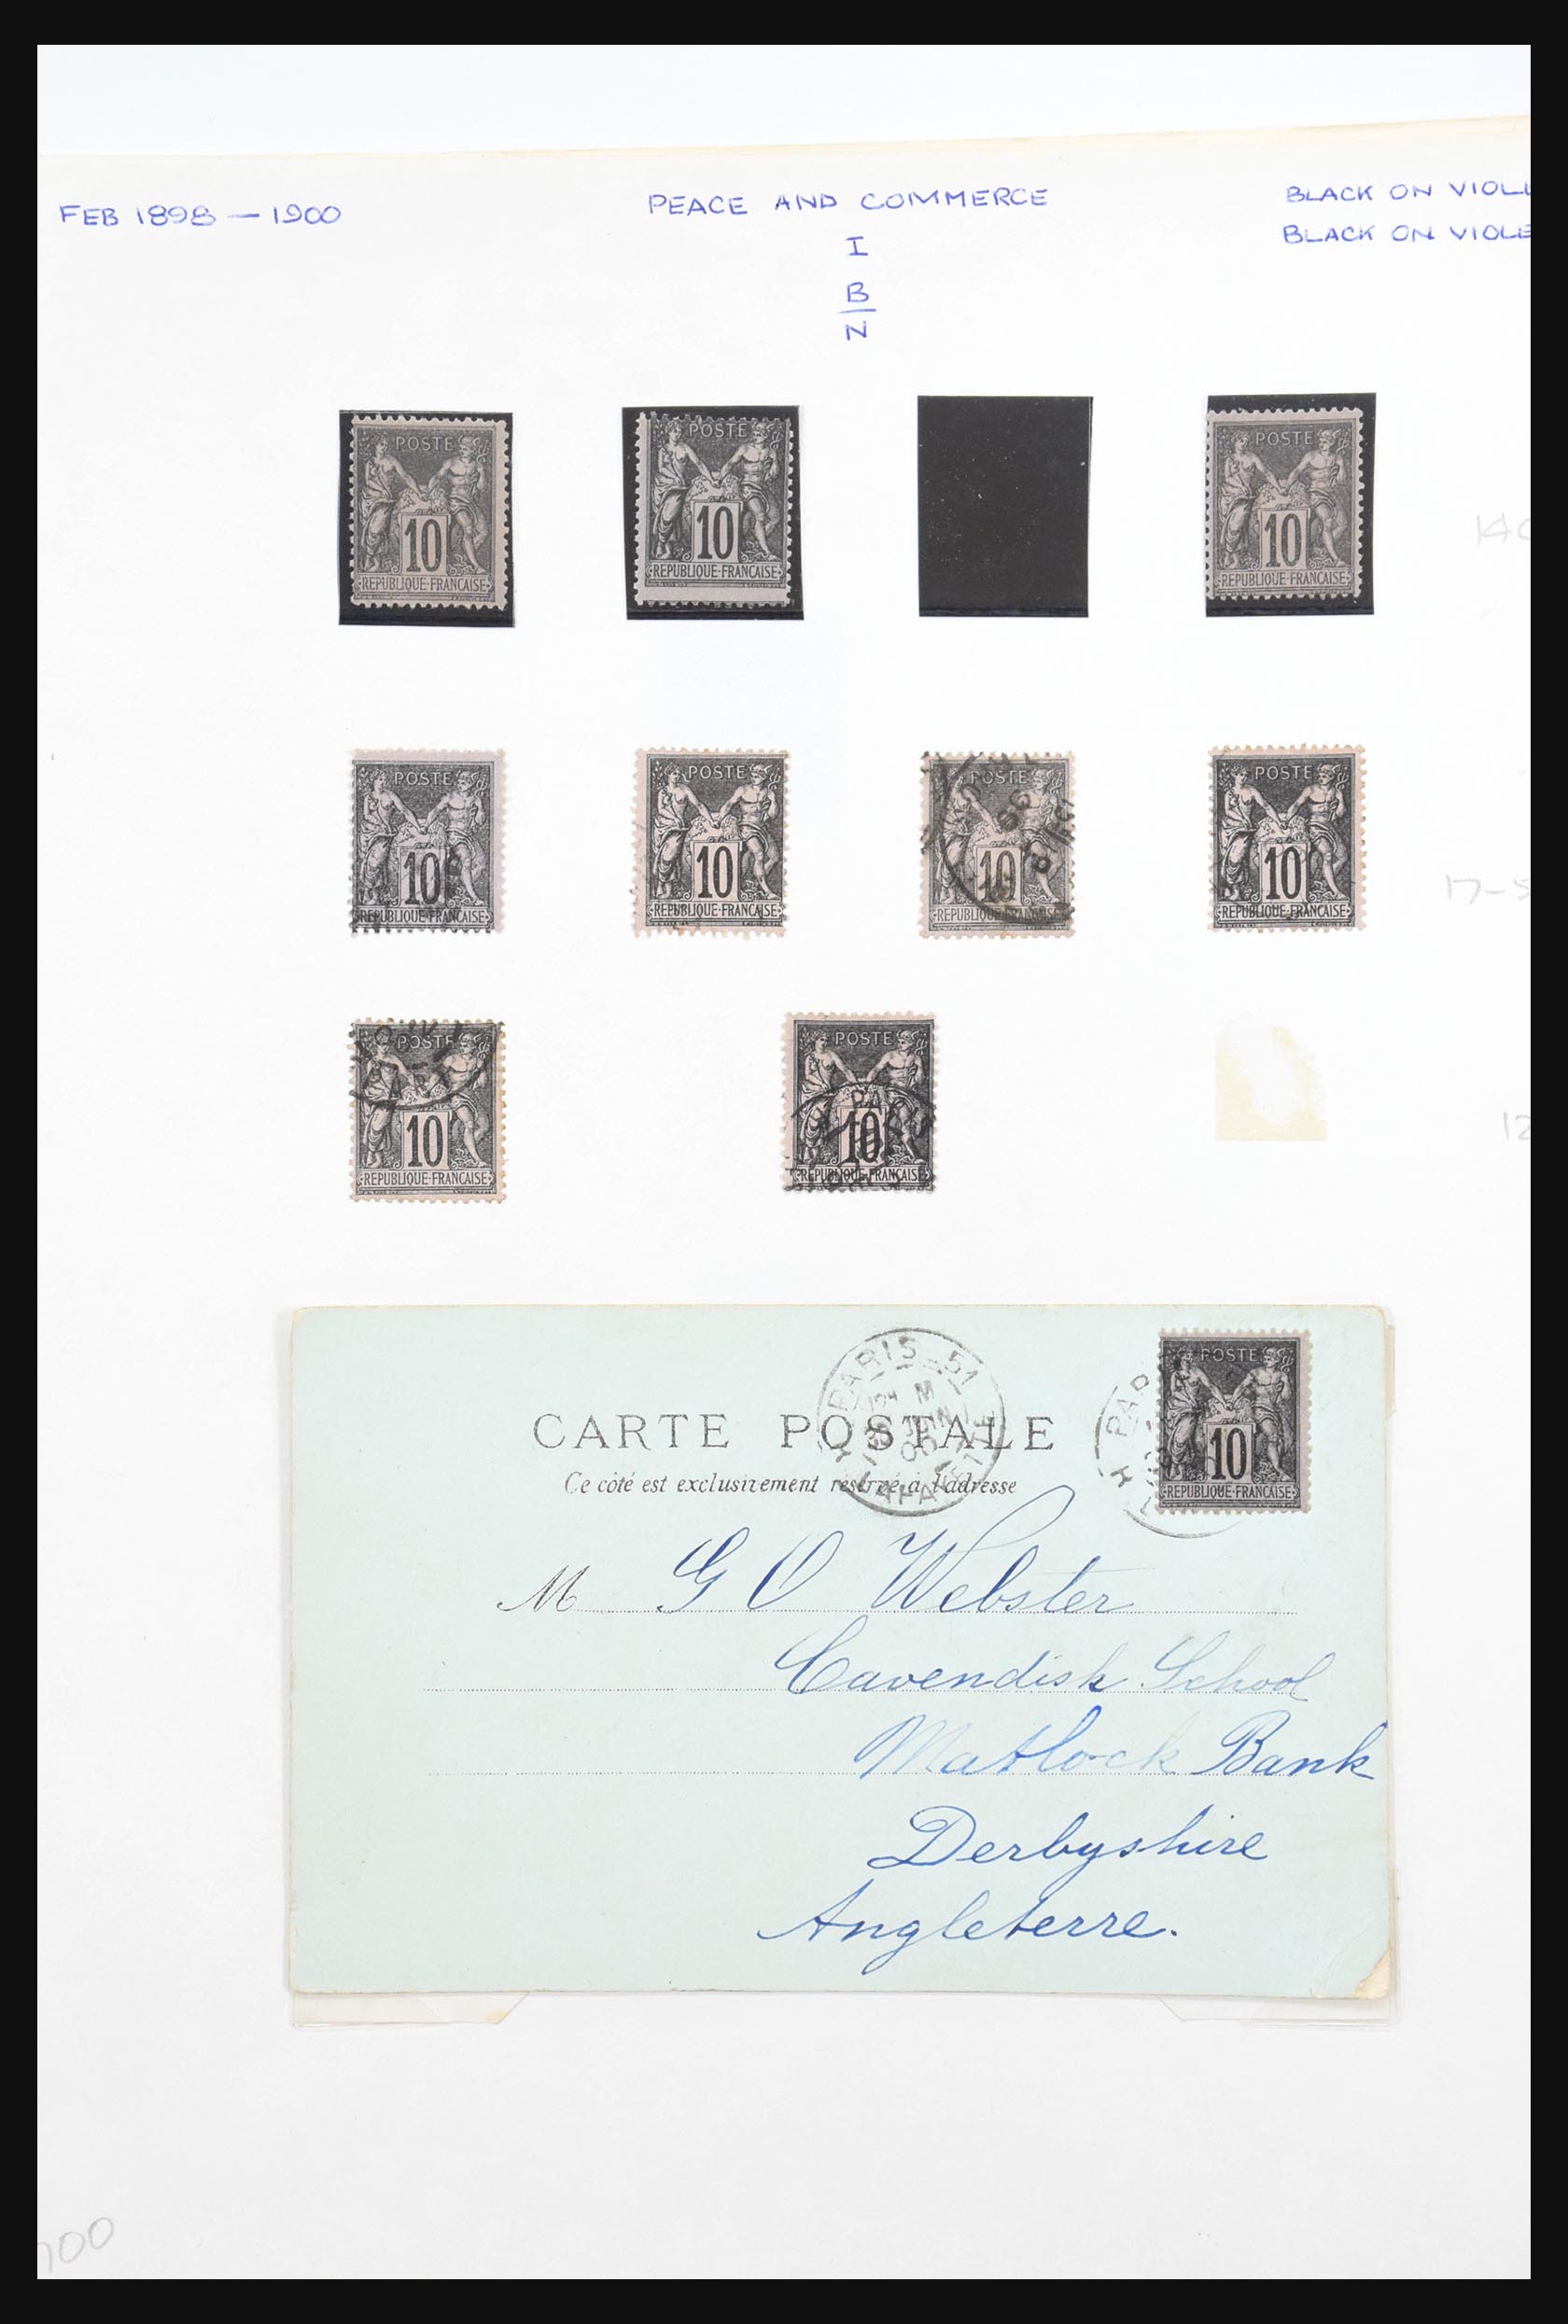 FEB 1898 — 1900
PEACE AND COMMERCE
I
B
N
BLACK ON VIOLE
BLACK ON VIOLE
POSTE
10
REPUBLIQUE·FRANCAISE
POSTE
10
REPUBLIQUE·FRANCAISE
POSTE
10
REPUBLIQUE·FRANCAISE
POSTE
10
REPUBLIQUE·FRANCAISE
POSTE
10
REPUBLIQUE·FRANCAISE
POSTE
10
REPUBLIQUE·FRANCAISE
POSTE
10
REPUBLIQUE·FRANCAISE
17-5
POSTE
10
REPUBLIQUE·FRANCAISE
POSTE
10
REPUBLIQUE·FRANCAISE
PARIS
12
PARIS 51
LAFAYETTE
POSTE
10
REPUBLIQUE·FRANCAISE
CARTE POSTALE
Ce côté est exclusivement réservé à l'adresse
M G O Webster
Cavendish School
Matlock Bank
Derbyshire
Angleterre.